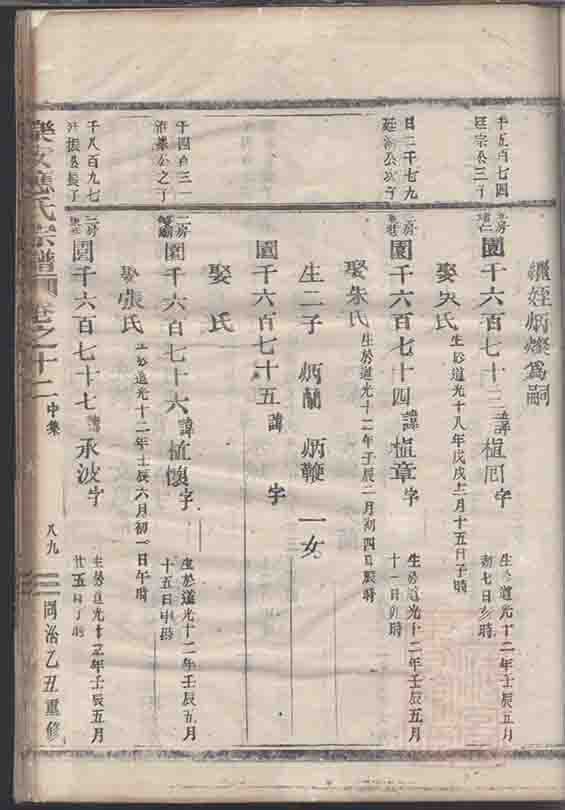 繼姪炳燦爲嗣
千五百七四
廷宗公三子
園千六百七十三 諱植 字 生於道光十二年壬辰五月初七日亥時
娶吳氏 生於道光十八年戊戌十二月十五日子時
廷 公次子
園千六百七十四 諱植章字 生於道光十二年壬辰五月十一日 時
娶朱氏 生於道光十二年壬辰二月初四日辰時
生二子 炳蘭 炳鞭 一女
園千六百七十五 諱 字
娶 氏
千四百三一
公之子
二房
園千六百七十六 諱植懷字 生於道光十二年壬辰五月十五日申時
娶張氏 生於道光十二年壬辰六月初一日午時
千八百九七
振公長子
園千六百七十七 諱承波字 生於道光十二年壬辰五月廿五日丁時
樂安應氏宗譜 卷之十二 中集 八九 同治乙丑重修